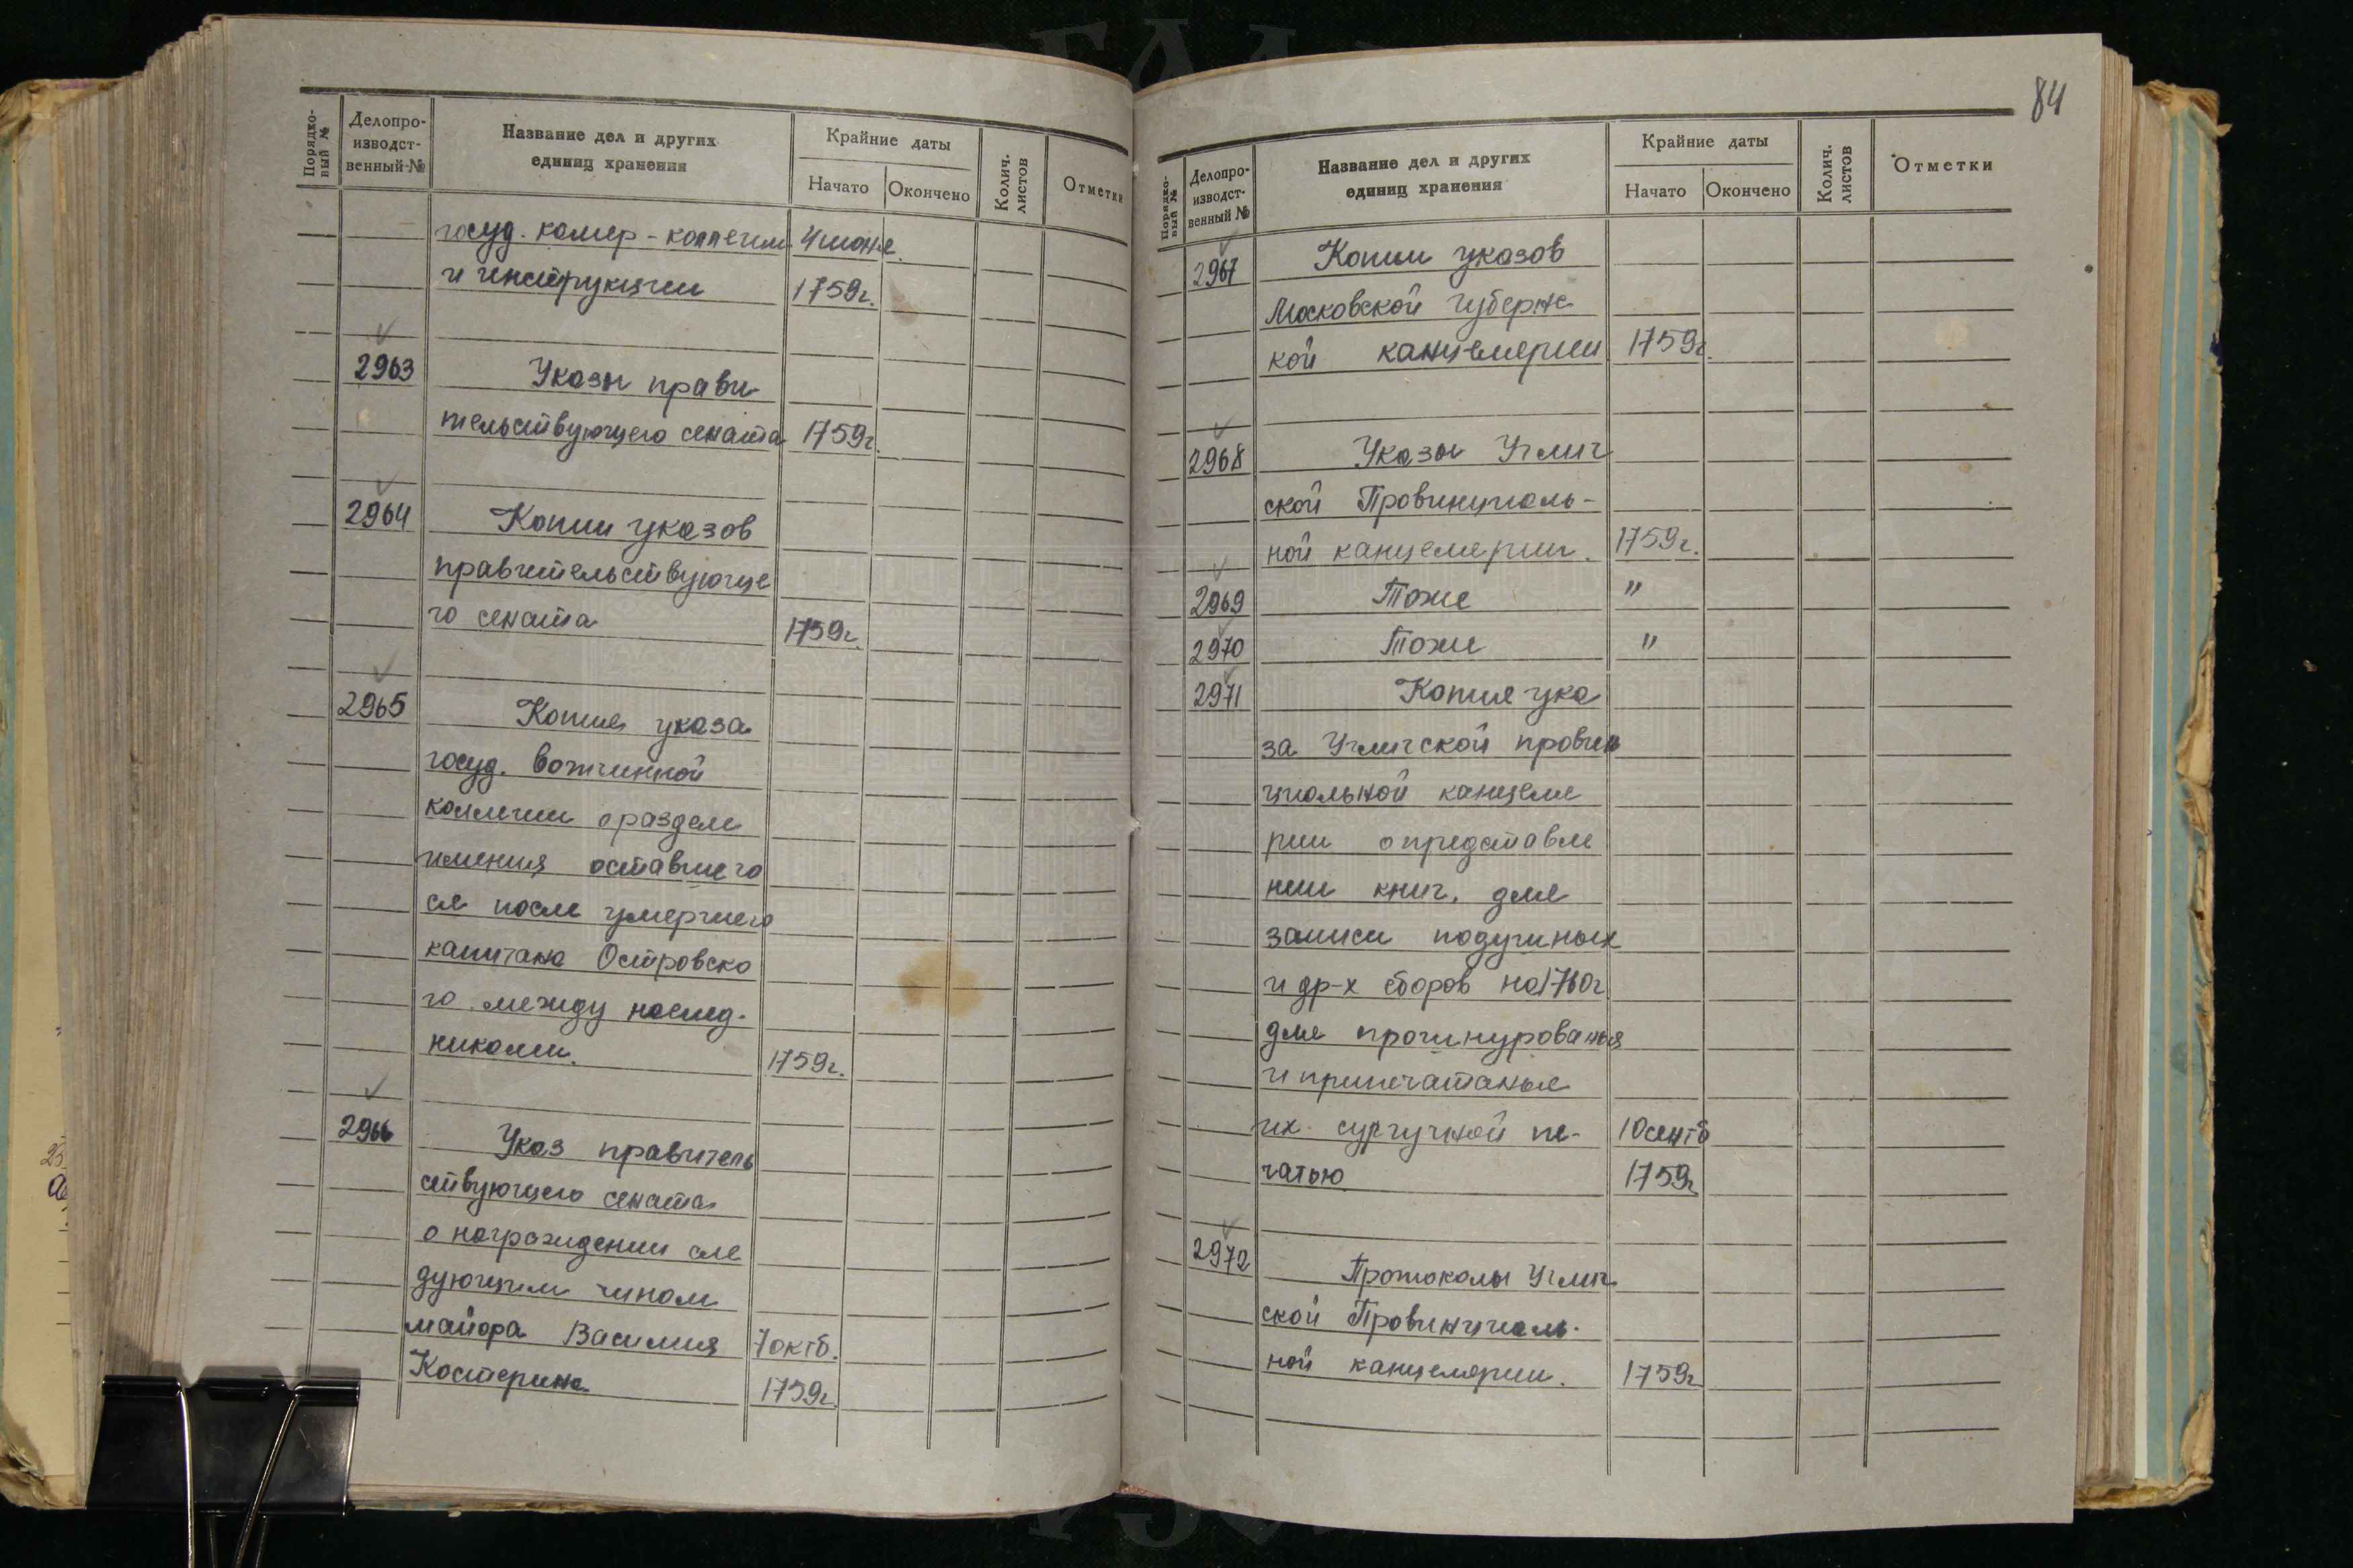 Порядко-
вый №
Делопро-
изводст-
венный №
Название дел и других
единиц хранения
Крайние даты
Начато
Окончено
Колич.
листов
Отметки
госуд. камер-коллегии
4 июня
и инструкции
1759г.
2963
Указы прави
тельствующего сената
1759г.
2964
Копии указов
правительствующе
го сената
1759г.
2965
Копия указа
госуд. вотчинной
коллегии о разделе
имения оставшего
ся после умершего
капитана Островско
го между наслед-
никами.
1759г.
2966
Указ правитель
ствующего сената
о награждении сле
дующим чином
майора Василия
7 октб.
Костерина
1759г.
84
Порядко-
вый №
Делопро-
изводст-
венный №
Название дел и других
единиц хранения
Крайние даты
Начато
Окончено
Колич.
листов
Отметки
2967
Копии указов
Московской губернс
кой канцелярии
1759г.
2968
Указы Углич
ской Провинциаль-
ной канцелярии.
1759г.
2969
Тоже
"
2970
Тоже
"
2971
Копия ука
за Угличской провин
циальной канцеля
рии о представле
нии книг, для
записи подушных
и др-х сборов на 1760г
для прошнурованья
и припечатанья
их сургучной пе-
10 сентб
чатью
1759г
2972
Протоколы Углич
ской Провинциаль-
ной канцелярии.
1759г